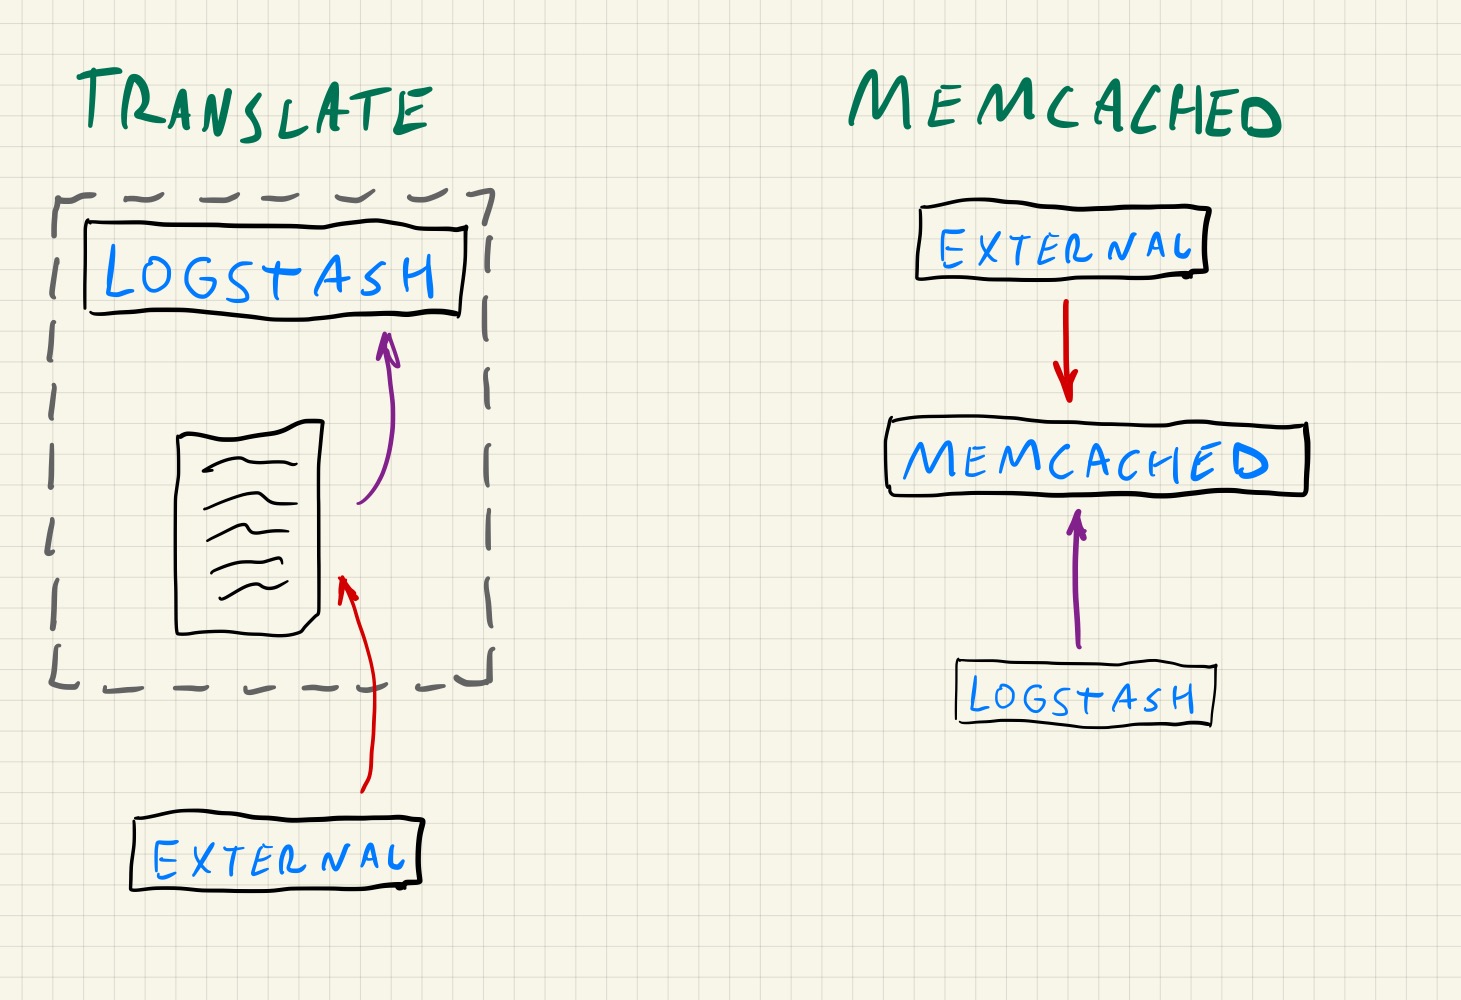 TRANSLATE
LOGSTASH
EXTERNAL
MEMCACHED
EXTERNAL
MEMCACHED
LOGSTASH